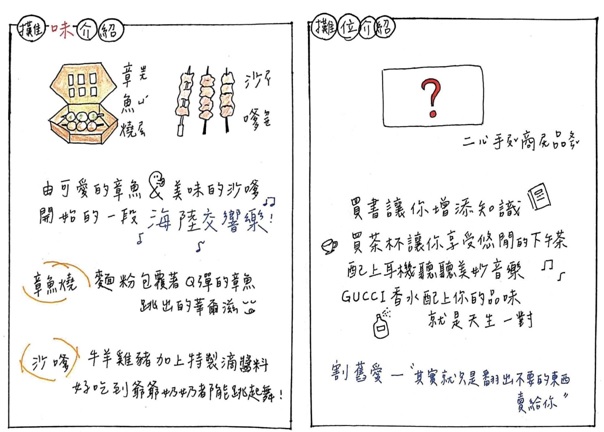 攤味介紹
章魚燒
沙嗲
由可愛的章魚 & 美味的沙嗲
開始的一段 海陸交響樂!
章魚燒 麵粉包覆著Q彈的章魚
跳出的華爾滋
沙嗲 牛羊雞豬加上特製滴醬料
好吃到爺爺奶奶都能跳起舞!
攤位介紹
?
二手商品
買書讓你增添知識
買茶杯讓你享受悠閒的下午茶
配上耳機聽聽美妙音樂
GUCCI香水配上你的品味
就是天生一對
割舊愛—"其實就只是翻出不要的東西
賣給你"